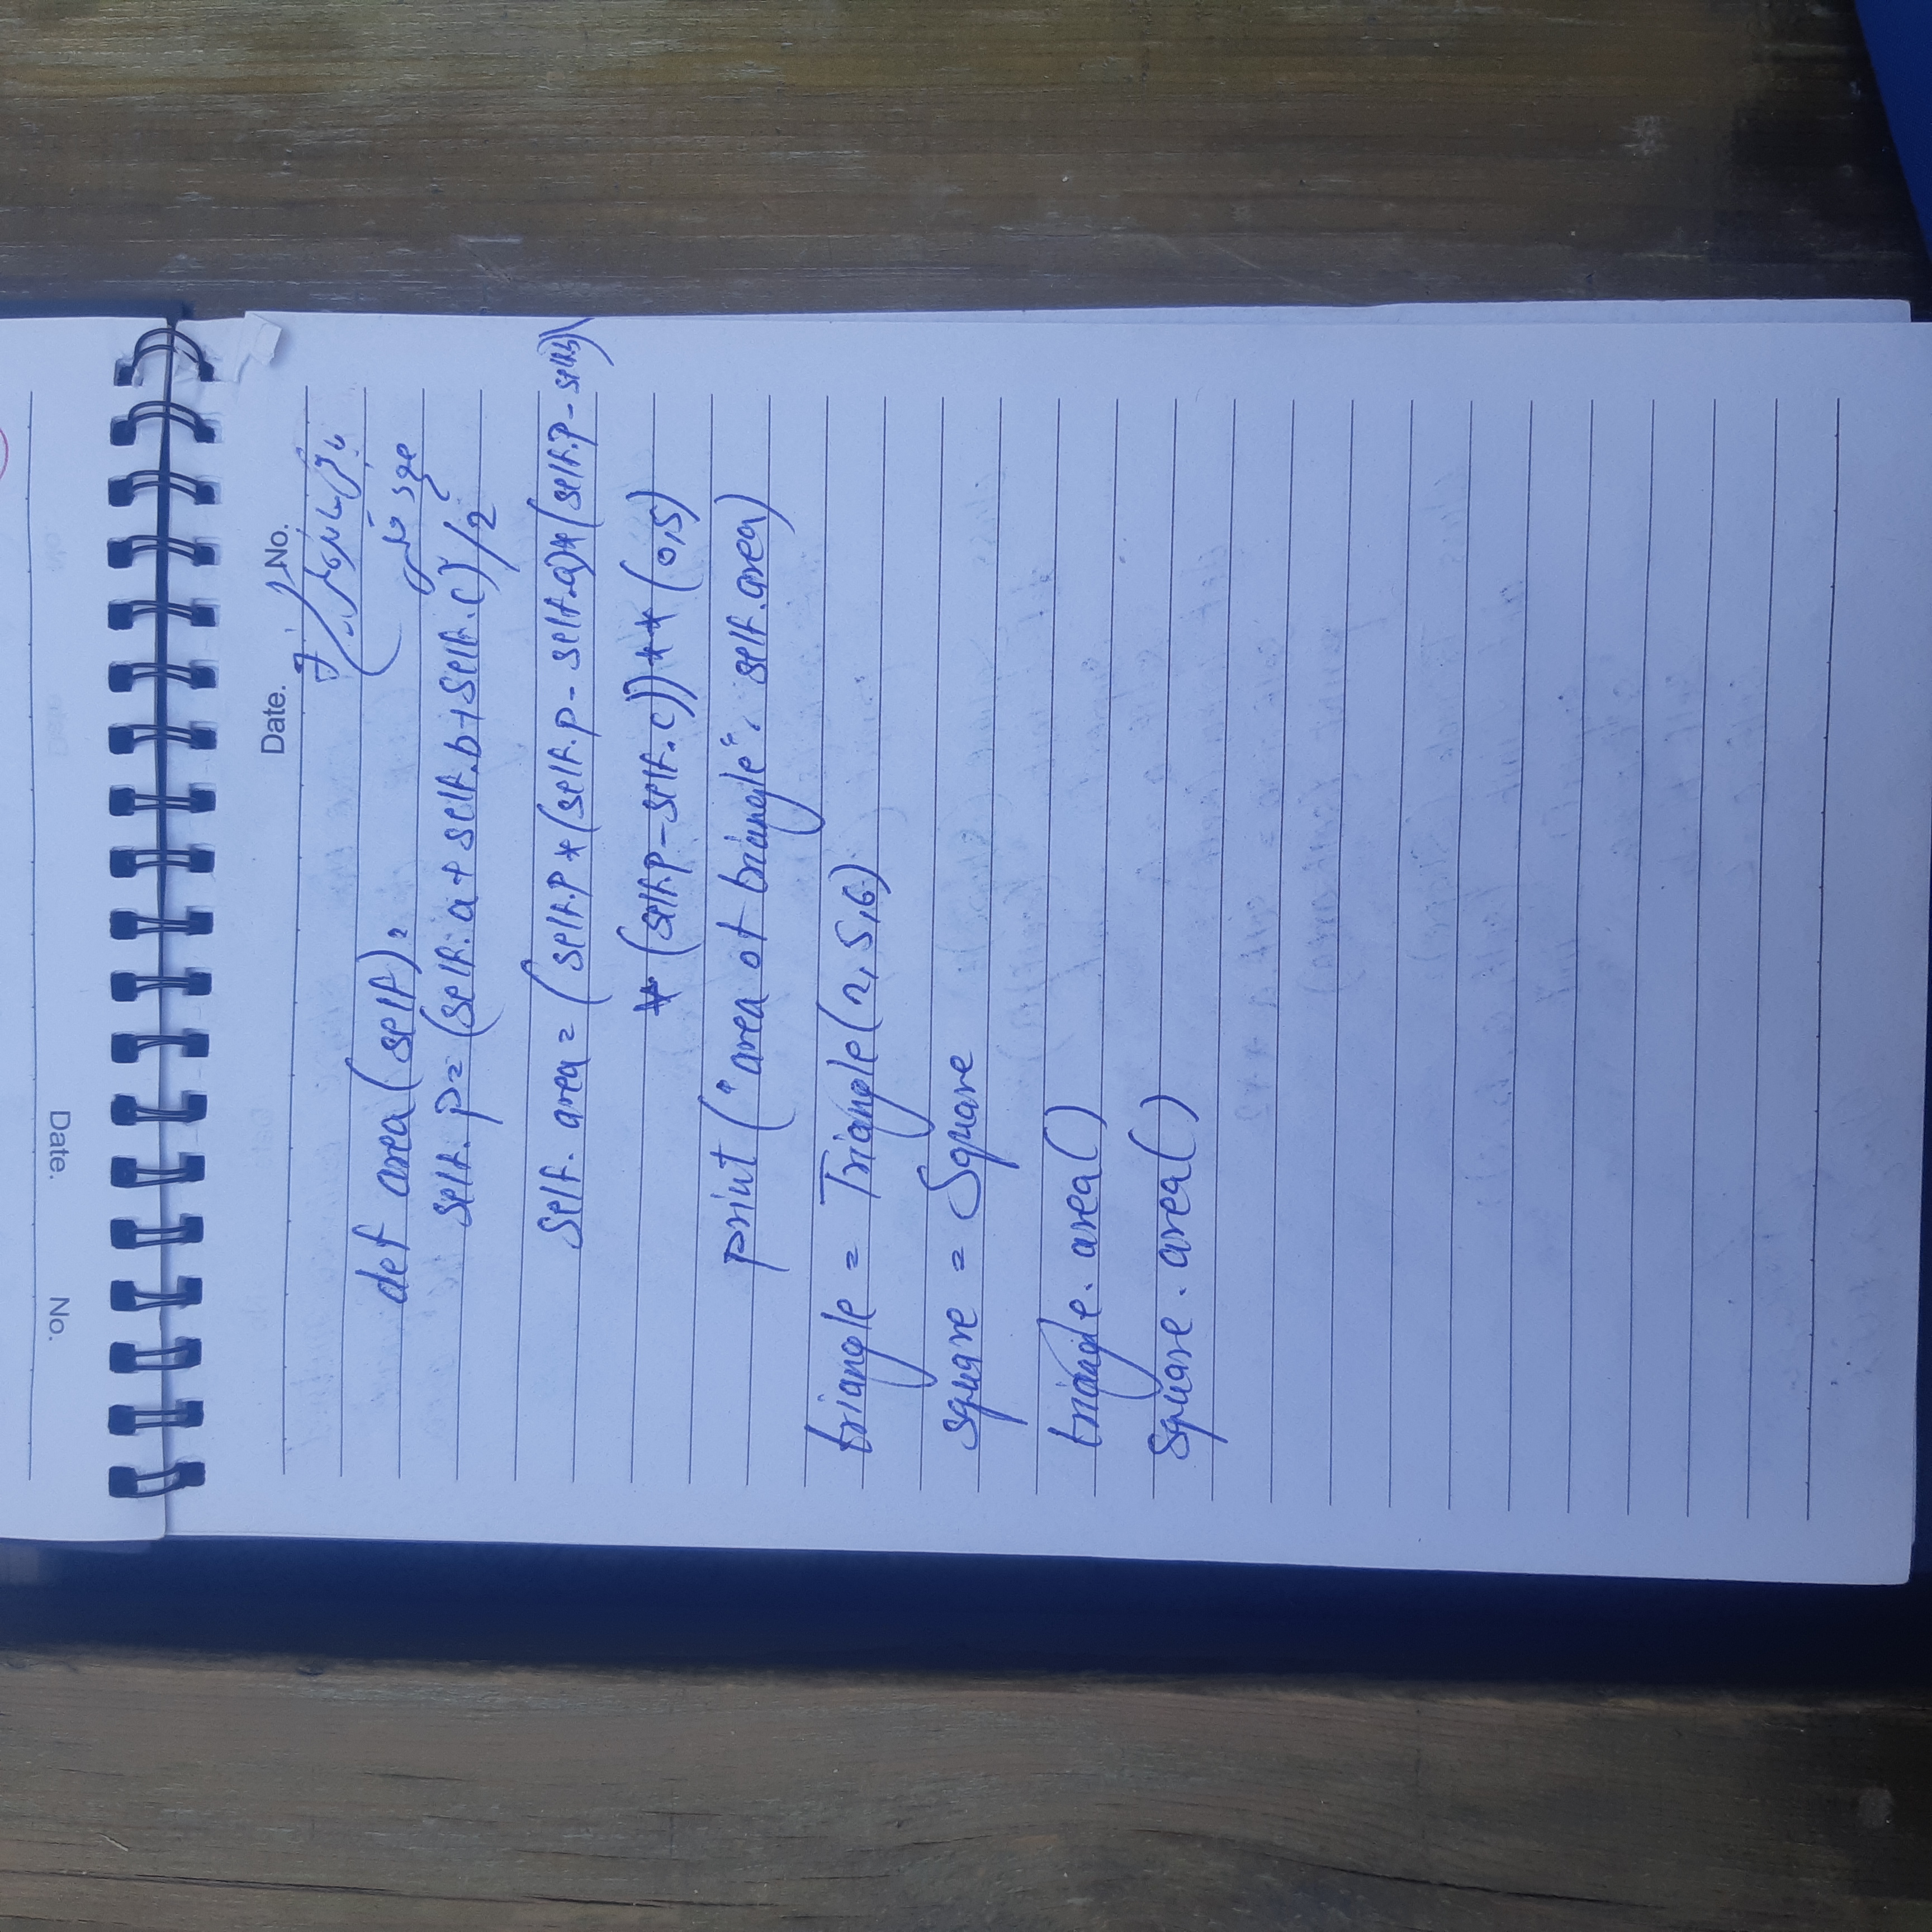 Date.
No.
def area(self):
self.p=(self.a+self.b+self.c)/2
self.area=(self.p*(self.p-self.a)*(self.p-self.b)
*(self.p-self.c))**(0,5)
print("area of triangle", self.area)
triangle = Triangle(2,5,6)
square = Square
triangle.area()
square.area()
No.
Date.